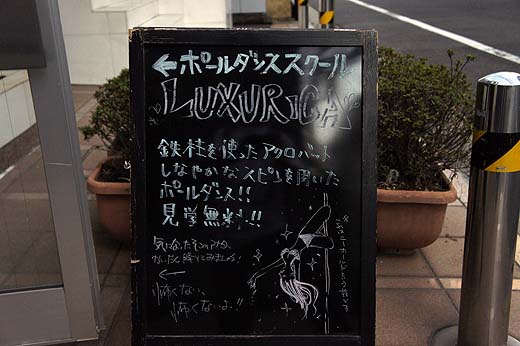 ←ポールダンススクール
LUXURICA
鉄柱を使ったアクロバット
しなやかなスピンを用いた
ポールダンス!!
見学無料!!
気になったそこのアナタ、
←
怖くない、
怖くないよ!!